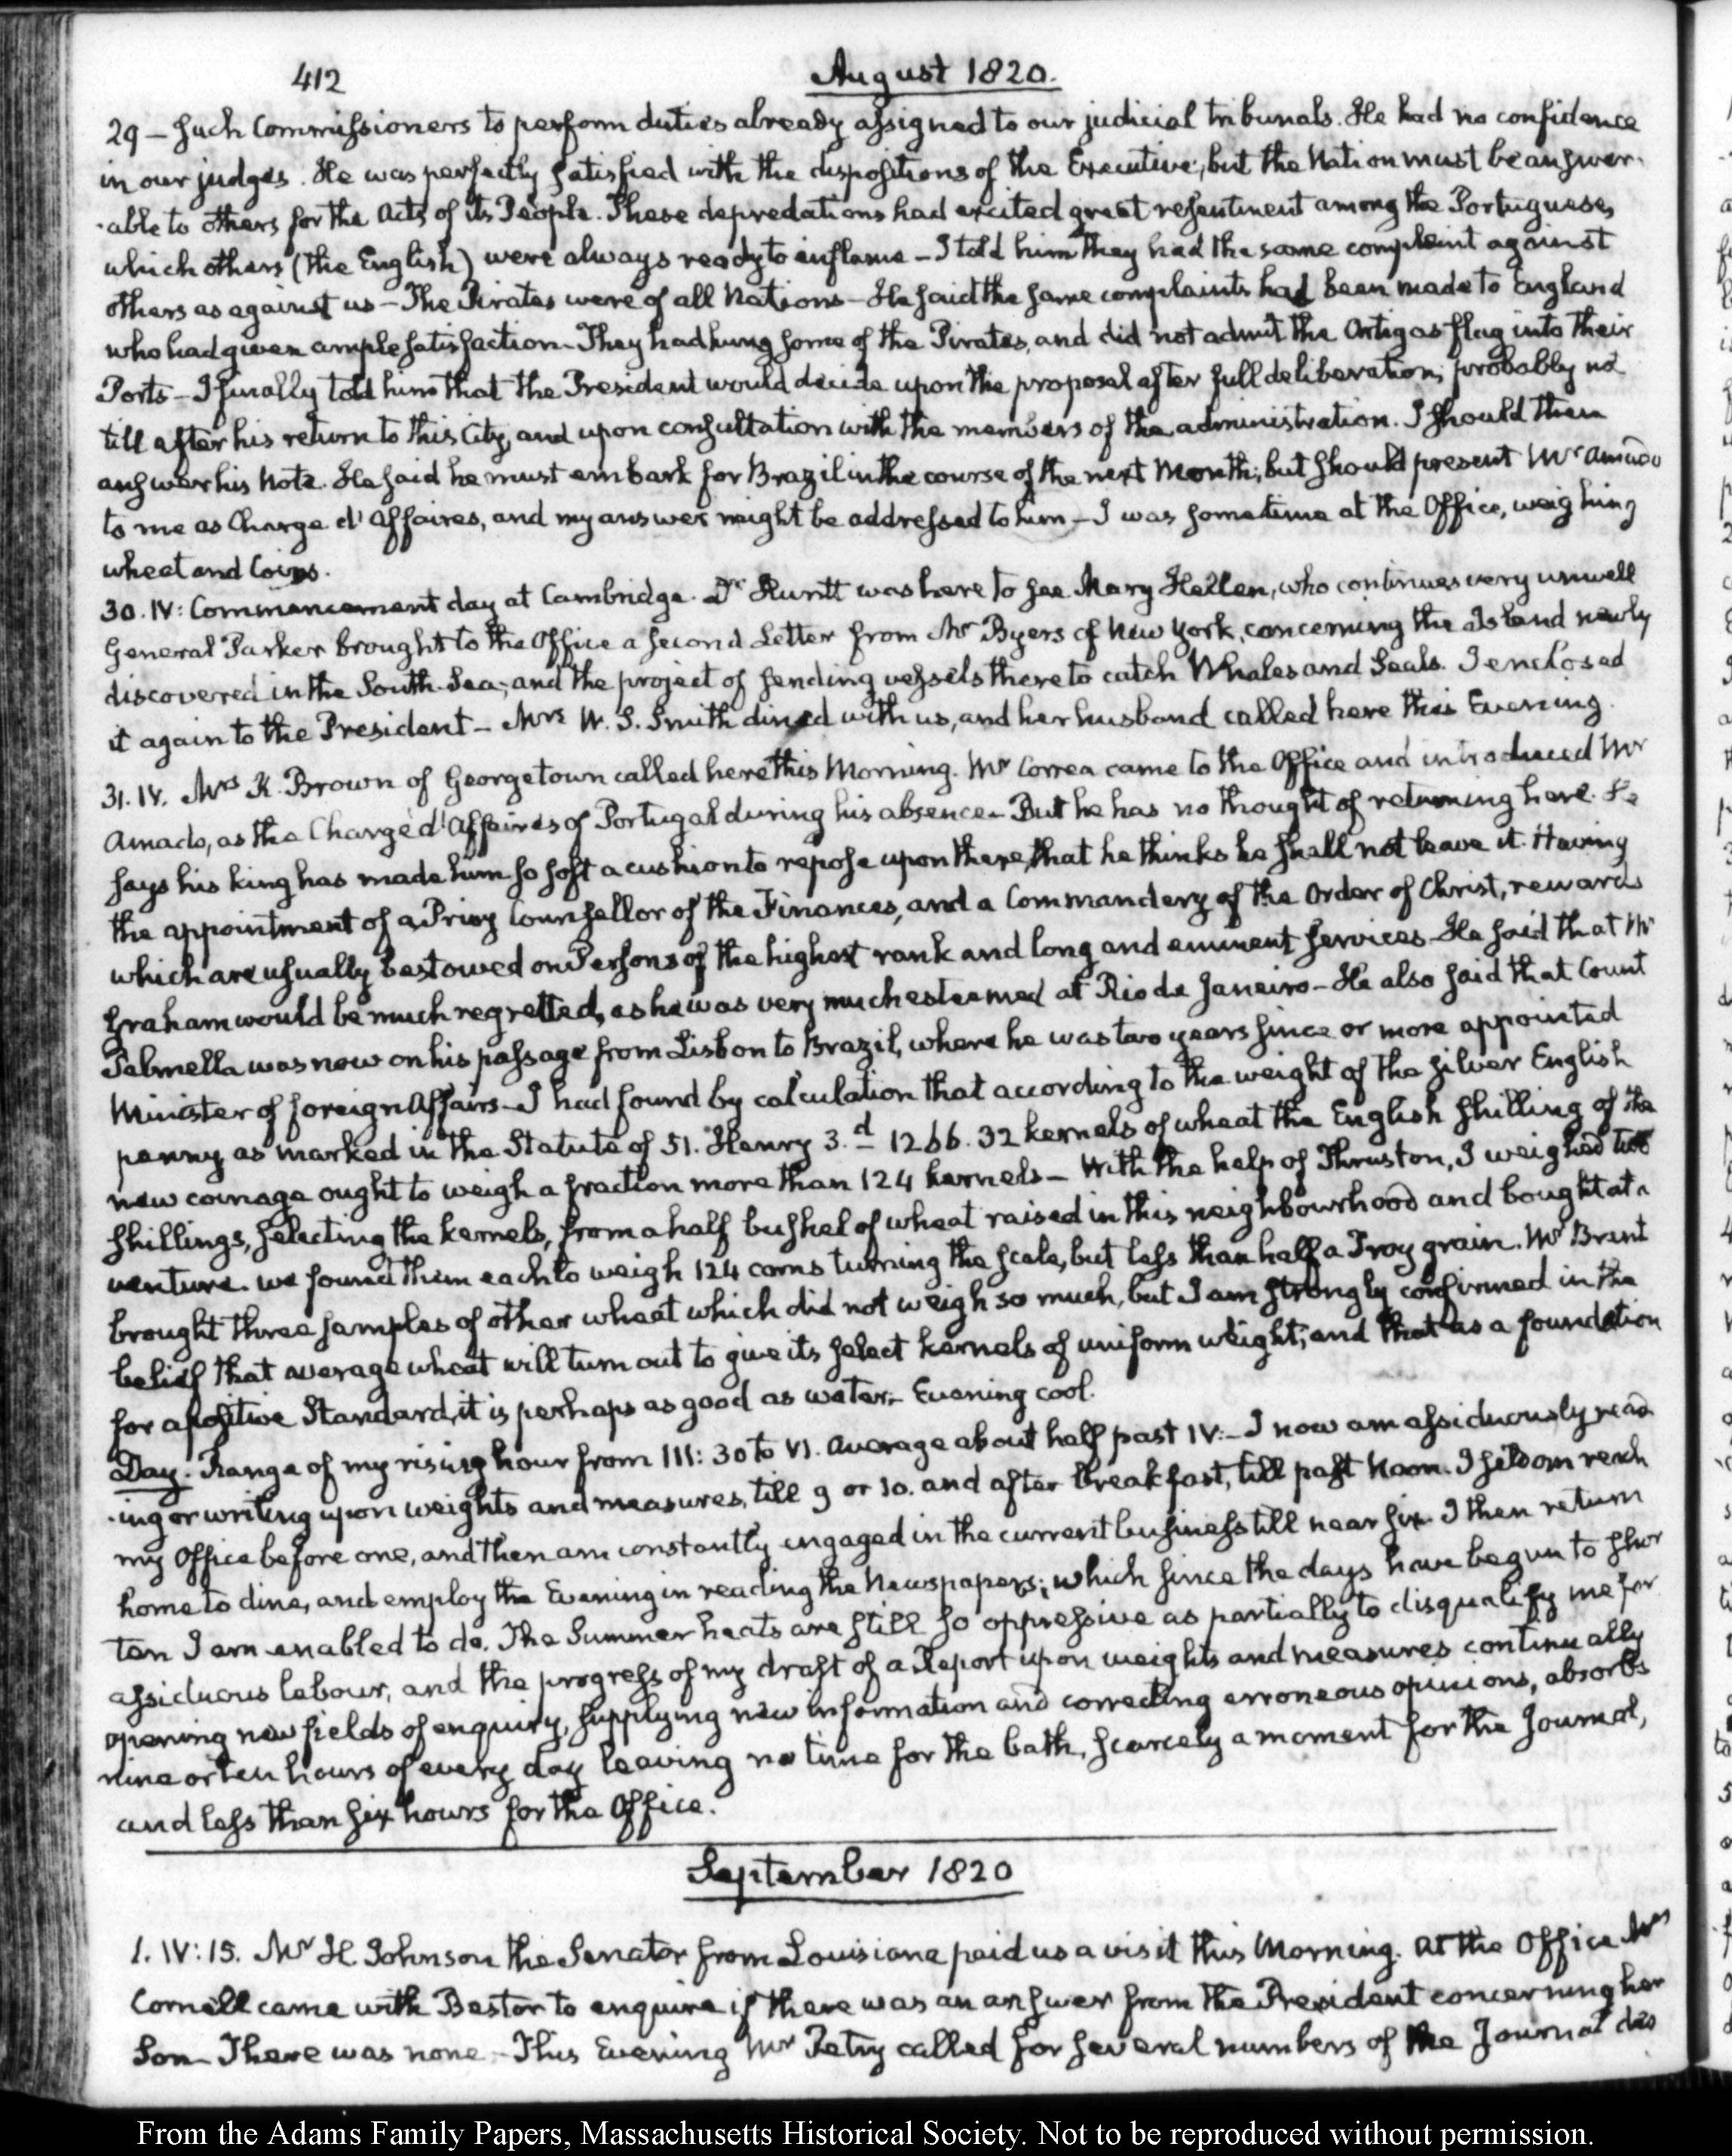 412
August 1820.
29 — such Commissioners to perform duties already assigned to our judicial tribunals. He had no confidence
in our judges. He was perfectly satisfied with the dispositions of the Executive; but the Nation must be answer-
-able to others for the Acts of its People. These depredations had excited great resentment among the Portuguese,
which others (the English) were always ready to inflame — I told him they had the same complaint against
others as against us — The Pirates were of all Nations — He said the same complaints had been made to England
who had given ample satisfaction — They had hung some of the Pirates, and did not admit the Artigas flag into their
Ports — I finally told him that the President would decide upon the proposal after full deliberation, probably not
till after his return to this City, and upon consultation with the members of the administration. I should then
answer his Note. He said he must embark for Brazil in the course of the next Month; but should present Mr Amado
to me as Charge d'Affaires, and my answer might be addressed to him — I was sometime at the Office, weighing
wheat and Coins.
30. IV: Commencement day at Cambridge. Dr Huntt was here to see Mary Hellen, who continues very unwell
General Parker brought to the Office a second Letter from Mr Byers of New York, concerning the Island newly
discovered in the South-Sea; and the project of sending vessels there to catch Whales and Seals. I enclosed
it again to the President — Mrs W. S. Smith dined with us, and her husband called here this Evening.
31. IV. Mrs K. Brown of Georgetown called here this Morning. Mr Correa came to the Office and introduced Mr
Amado, as the Chargé d'Affaires of Portugal during his absence — But he has no thought of returning here. He
says his king has made him so soft a cushion to repose upon there, that he thinks he shall not leave it. Having
the appointment of a Privy Counsellor of the Finances, and a Commandery of the Order of Christ, rewards
which are usually bestowed on Persons of the highest rank and long and eminent services — He said that Mr
Graham would be much regretted, as he was very much esteemed at Rio de Janeiro — He also said that Count
Palmella was now on his passage from Lisbon to Brazil, where he was two years since or more appointed
Minister of foreign Affairs — I had found by calculation that according to the weight of the silver English
penny as marked in the Statute of 51. Henry 3.d 1266. 32 kernels of wheat the English shilling of the
new coinage ought to weigh a fraction more than 124 kernels — With the help of Thruston, I weighed two
shillings, selecting the kernels, from a half bushel of wheat raised in this neighbourhood and bought at a
venture. we found them each to weigh 124 corns turning the scale, but less than half a Troy grain. Mr Brent
brought three samples of other wheat which did not weigh so much, but I am strongly confirmed in the
belief that average wheat will turn out to give its select kernels of uniform weight; and that as a foundation
for a positive Standard, it is perhaps as good as water. — Evening cool.
Day. Range of my rising hour from III: 30 to VI. Average about half past IV. — I now am assiduously read-
-ing or writing upon weights and measures, till 9 or 10. and after breakfast, till past Noon. I seldom reach
my Office before one, and then am constantly engaged in the current business till near six. I then return
home to dine, and employ the Evening in reading the Newspapers; which since the days have begun to shor
ten I am enabled to do. The Summer heats are still so oppressive as partially to disqualify me for
assiduous labour, and the progress of my draft of a Report upon weights and measures continually
opening new fields of enquiry, supplying new information and correcting erroneous opinions, absorbs
nine or ten hours of every day leaving no time for the bath, scarcely a moment for the Journal,
and less than six hours for the Office.
September 1820
1. IV: 15. Mr H. Johnson the Senator from Louisiana paid us a visit this Morning. At the Office Mrs
Cornell came with Bestor to enquire if there was an answer from the President concerning her
Son — There was none. — This Evening Mr Petry called for several numbers of the Journal des
From the Adams Family Papers, Massachusetts Historical Society. Not to be reproduced without permission.